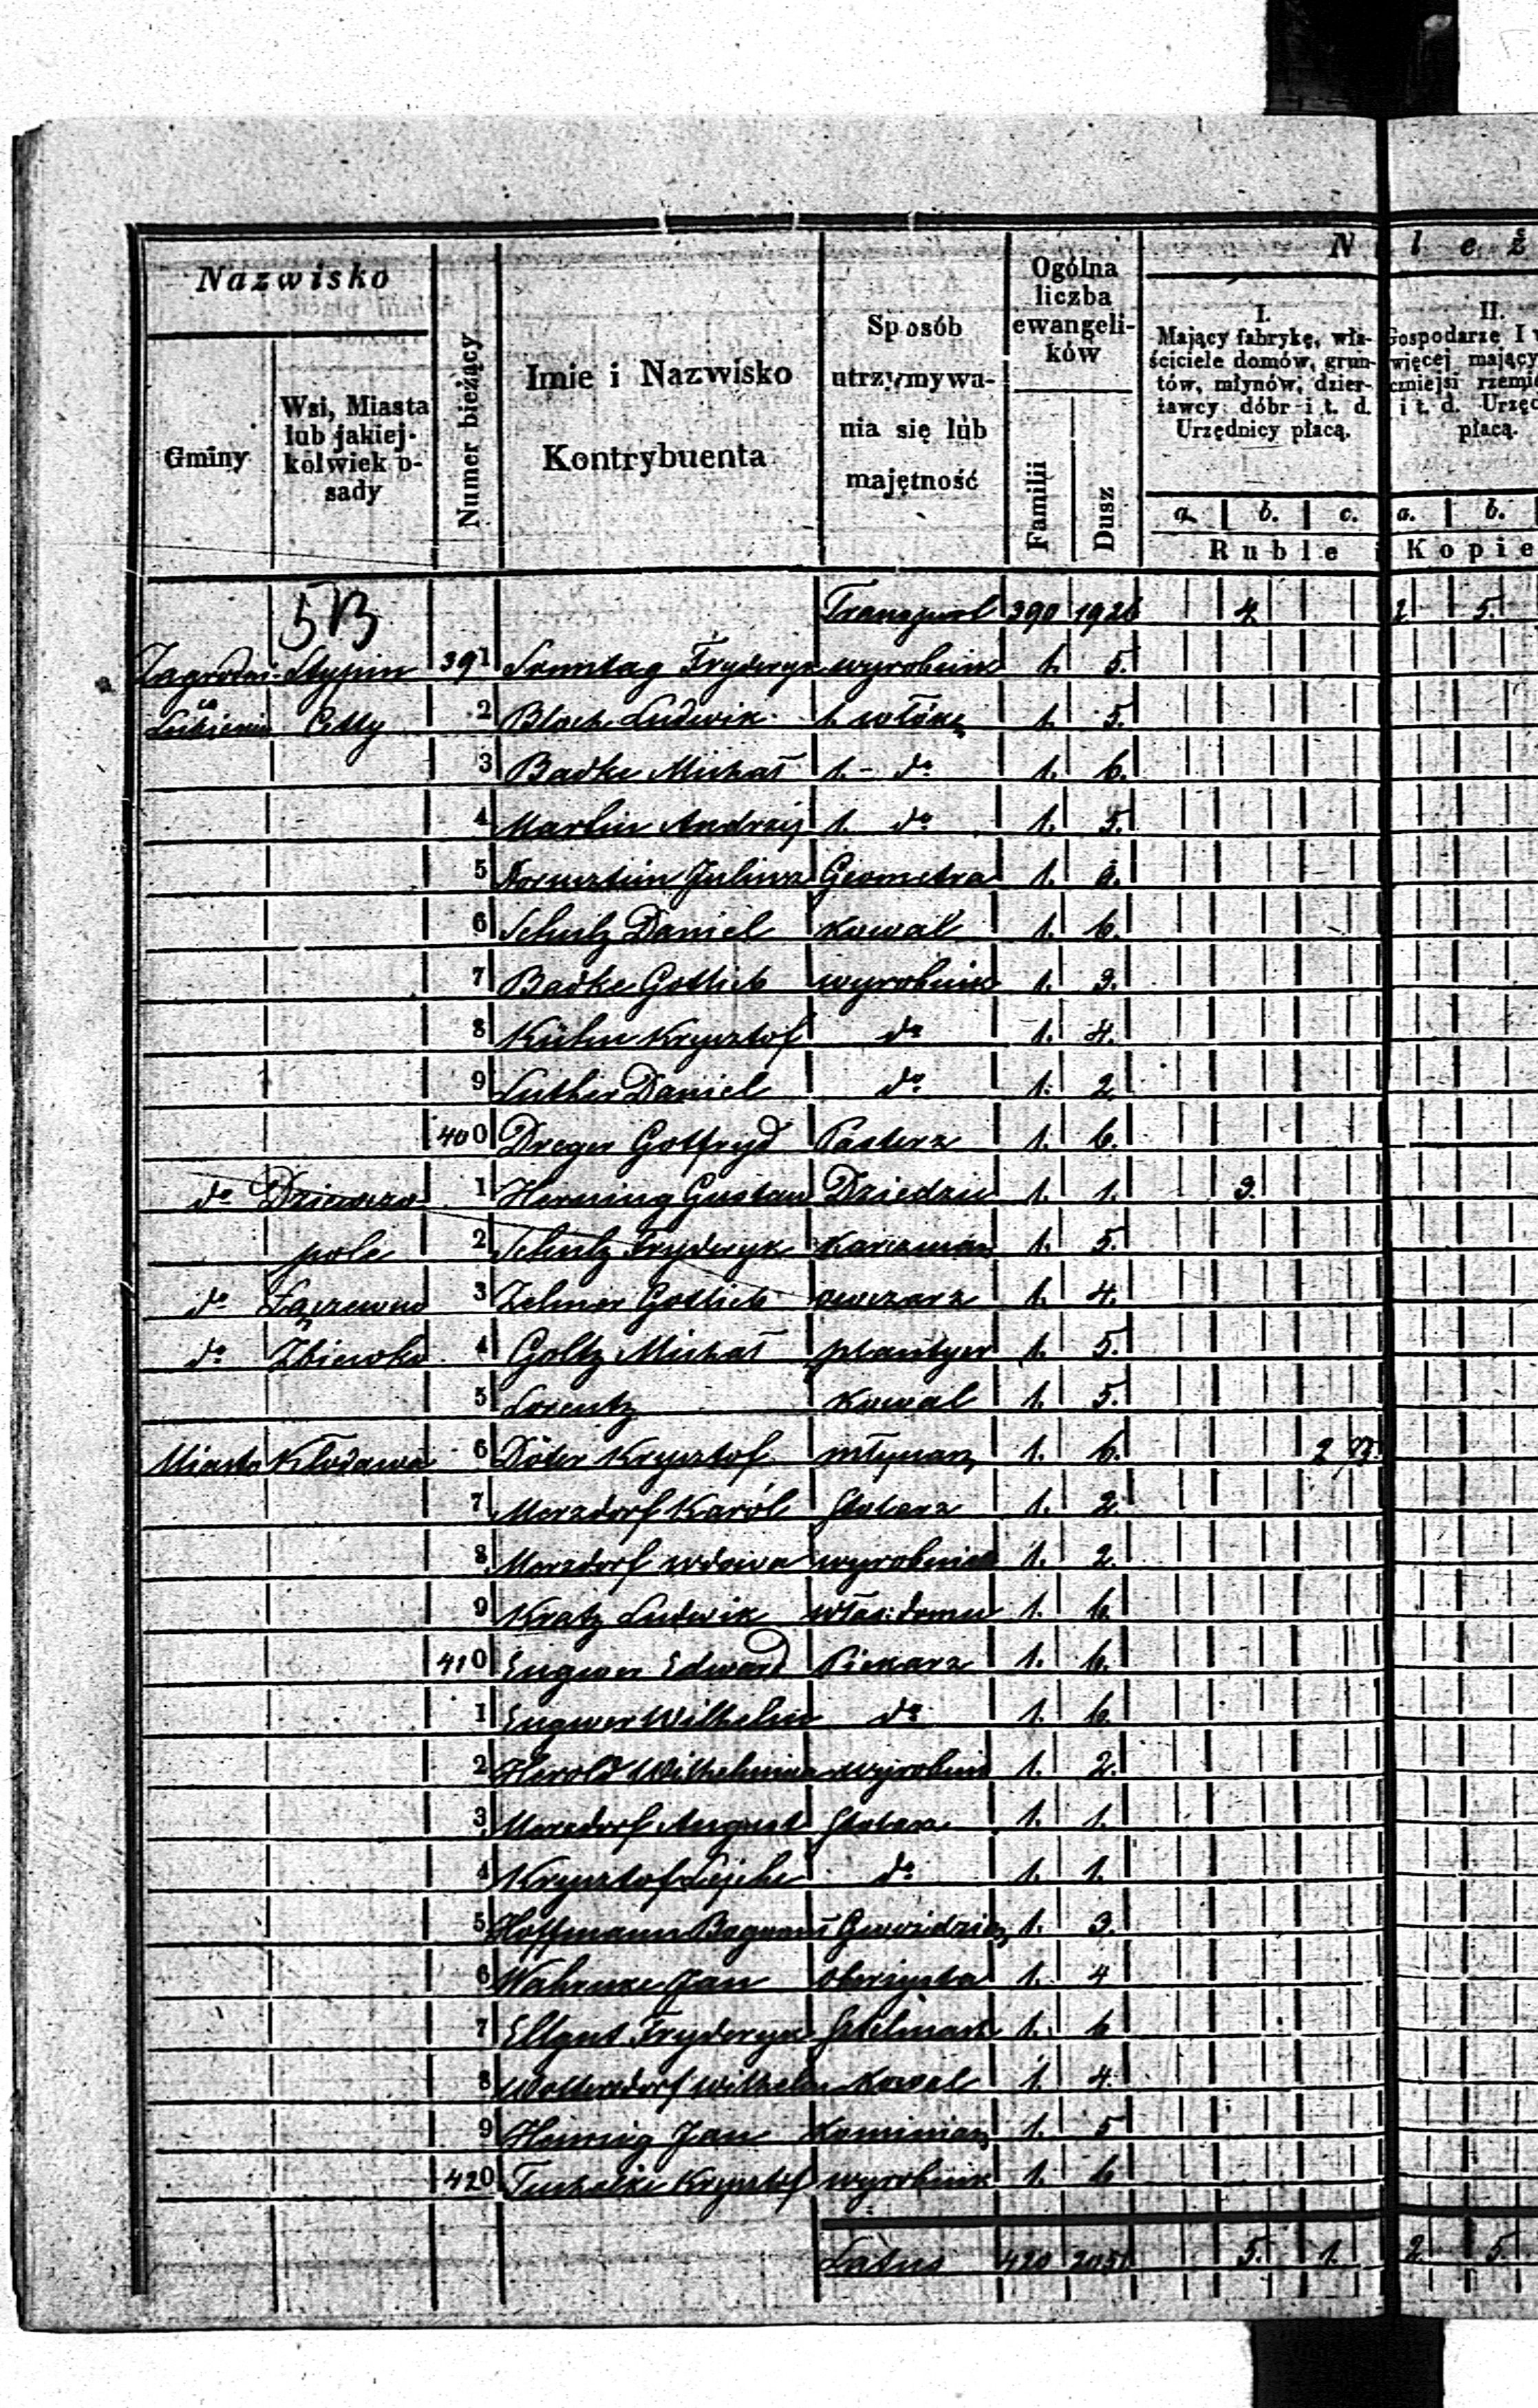 Nazwisko
Gminy
Wsi, Miasta
lub jakiej-
kolwiek o-
sady
Numer bieżący
Imie i Nazwisko
Kontrybuenta
Sposób
utrzymywa-
nia się lub
majętność
Ogólna
liczba
ewangeli-
ków
Familii
Dusz
N l e ż
I.
Mający fabrykę, wła-
ściciele domów, grun-
tów, młynów, dzier-
żawcy dóbr i t. d.
Urzędnicy płacą.
II.
Gospodarze I
więcej mający
cmiejsi rzemi
i t. d. Urzęd
płacą.
a. b. c. a. b.
Ruble i Kopie
5B Transport 390 1926 4 2 5.
Stypin 391 Sonntag Fryderyk wyrobnik 1. 5.
Cetty 2 Bloch Ludwik 1. włókę 1. 5.
3 Badke Michał 1.- do 1. 6.
4 Martin Andrzej 1. do 1. 5.
5 Juliusz Geometra 1.
6 Schulz Daniel Kowal 1. 6.
7 Badke Gottlieb wyrobnik 1. 3.
8 Kühn Krysztof do 1. 4.
9 Luther Daniel do 1. 2
400 Dreger Gotfryd Pasterz 1. 6.
do Dziewczo 1 Henning Gustaw Dziedzic 1. 1. 3.
pole 2 Schulz Fryderyk Karczmarz 1. 5.
do Łączewna 3 Zelmer Gottlieb owczarz 1. 4.
do Zbiewko 4 Goltz Michał plantyer 1. 5.
5 Lorentz Kowal 1. 5.
Miasto Kłodawa 6 Döter Krysztof młynarz 1. 6. 2
7 Merzdorf Karól Stolarz 1. 2.
8 Merzdorf wdowa wyrobnica 1. 2.
9 Kratz Ludwik włas: domu 1. 6
410 Engwer Edward Piekarz 1. 6.
1 Engwer Wilhelm do 1. 6.
2 Herold Wilhelmina wyrobnic 1. 2.
3 Merzdorf August Stolarz 1. 1.
4 Krysztof do 1. 1.
5 Hoffmann Bogumił Gwoździarz 1. 3.
6 Jan oberzysta 1. 4
7 Fryderyk Stelmach 1. 6
8 Woltersdorf Wilhelm Kowal 1. 4.
9 Heinrig Jan Kominiarz 1. 5
420 Krysztof wyrobnik 1. 6
Latus 420 2051 5. 1. 2 5.